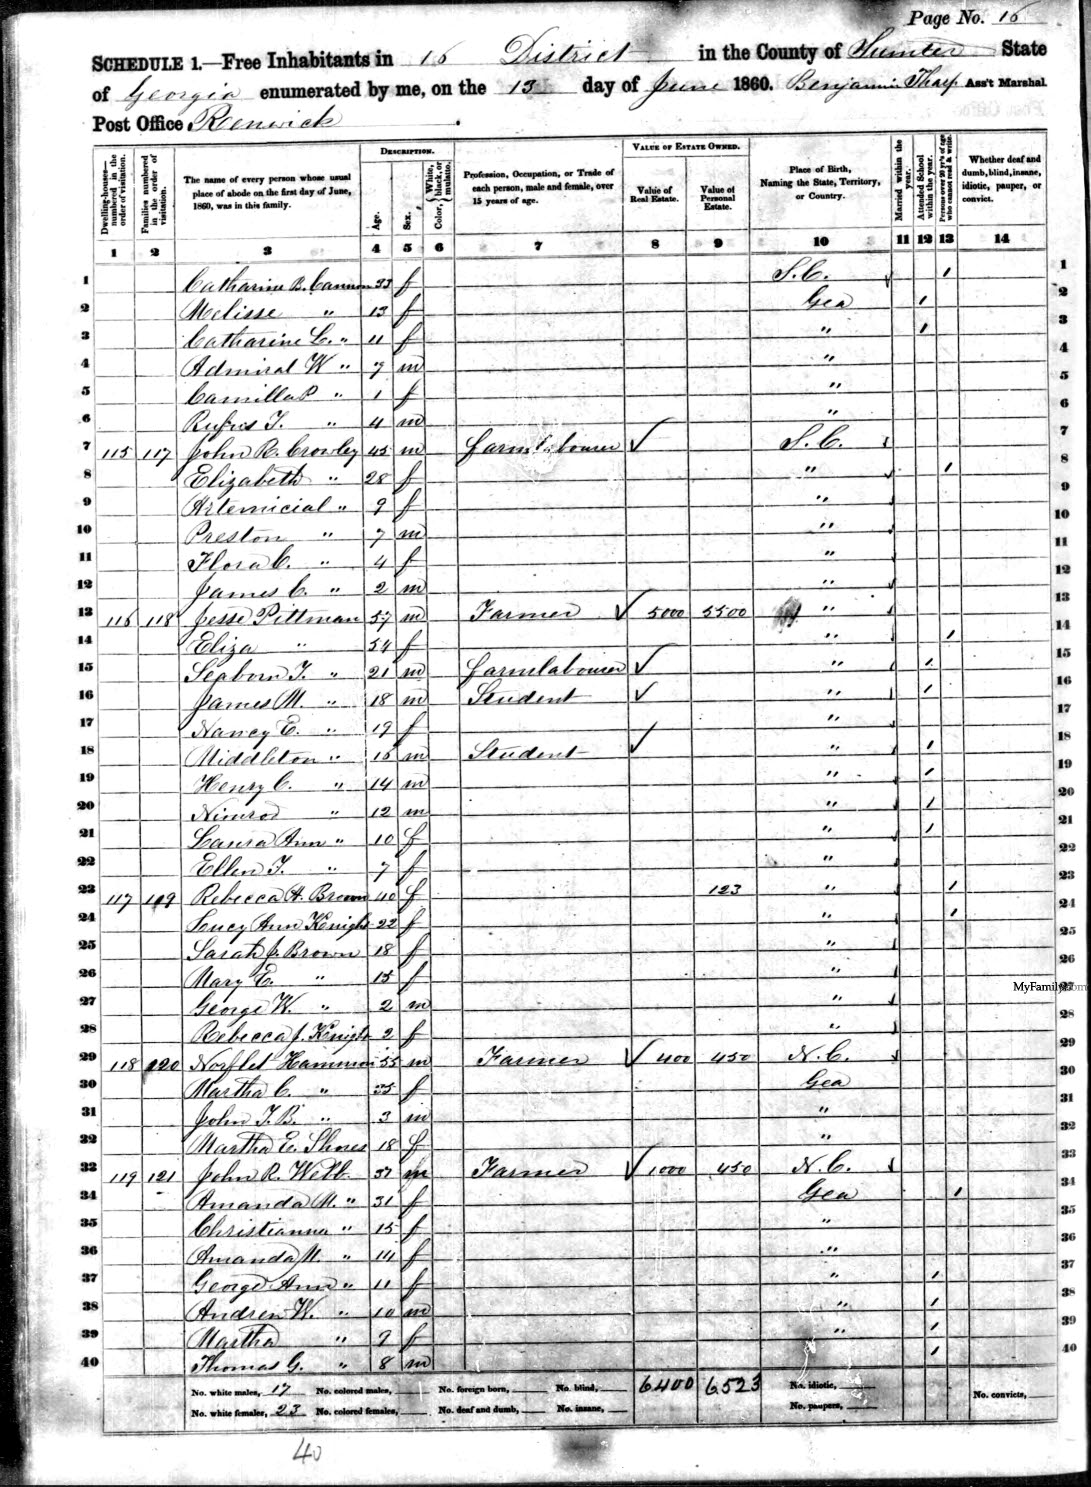 Page No. 16
SCHEDULE 1.—Free Inhabitants in 16 District in the County of Sumter State
of Georgia enumerated by me, on the 13 day of June 1860. Benjamin Tharp Ass't Marshal.
Post Office Renwick.
Dwelling-houses—numbered in the order of visitation. Families numbered in the order of visitation. The name of every person whose usual place of abode on the first day of June, 1860, was in this family. DESCRIPTION. Age. Sex. Color, White, black, or mulatto. Profession, Occupation, or Trade of each person, male and female, over 15 years of age. VALUE OF ESTATE OWNED. Value of Real Estate. Value of Personal Estate. Place of Birth, Naming the State, Territory, or Country. Married within the year. Attended School within the year. Persons over 20 yr's of age who cannot read & write. Whether deaf and dumb, blind, insane, idiotic, pauper, or convict.
1 2 3 4 5 6 7 8 9 10 11 12 13 14
1 Catharine B. Cannon 33 f S.C. 1 1
2 Melisse " 13 f Gea 1 2
3 Catharine L. " 11 f " 1 3
4 Admiral W " 7 m " 4
5 Camilla P " 1 f " 5
6 Rufus T. " 4 m " 6
7 115 117 John R. Crowley 45 m farm labourer ✓ S.C. 7
8 Elizabeth " 28 f " 1 8
9 Artemicial " 9 f " 9
10 Preston " 7 m " 10
11 Flora C. " 4 f " 11
12 James C. " 2 m " 12
13 116 118 Jesse Pittman 57 m Farmer ✓ 5000 5500 " 13
14 Eliza " 54 f " 1 14
15 Seaborn T. " 21 m farmlabourer ✓ " 1 15
16 James M. " 18 m Student ✓ " 1 16
17 Nancy E. " 19 f " 17
18 Middleton " 16 m Student ✓ " 1 18
19 Henry C. " 14 m " 1 19
20 Nimrod " 12 m " 1 20
21 Laura Ann " 10 f " 1 21
22 Ellen T. " 7 f " 22
23 117 119 Rebecca H. Brown 40 f 123 " 1 23
24 Lucy Ann Knight 22 f " 1 24
25 Sarah J. Brown 18 f " 25
26 Mary E. " 15 f " 26
27 George W. " 2 m " 27
28 Rebecca J. Knight 2 f " 28
29 118 120 Norflet Hammon 55 m Farmer ✓ 400 450 N.C. 29
30 Martha C. " 35 f Gea 30
31 John T. B. " 3 m " 31
32 Martha E. Shores 18 f " 32
33 119 121 John R. Webb 37 m Farmer ✓ 1000 450 N.C. 33
34 Amanda M. " 31 f Gea 1 34
35 Christianna " 15 f " 35
36 Amanda M. " 14 f " 36
37 George Ann " 11 f " 1 37
38 Andrew W. " 10 m " 1 38
39 Martha " 9 f " 1 39
40 Thomas G. " 8 m 1 40
No. white males, 17 No. colored males, No. foreign born, No. blind, 6400 6523 No. idiotic,
No. white females, 23 No. colored females, No. deaf and dumb, No. insane, No. paupers, No. convicts,
40
MyFamily.com